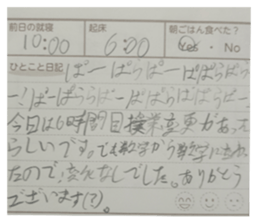 前日の就寝 起床 朝ごはん食べた?
10:00 6:00 Yes・No
ひとこと日記 ぱーぱらぱーぱぱらぱ
ー!ぱーぱららぱーぱぱらぱぱーぱー
今日は6時間目授業変更があった
らしいです。でも数学から数学に
たので、変化なしでした。ありがとう
ございます(?)。